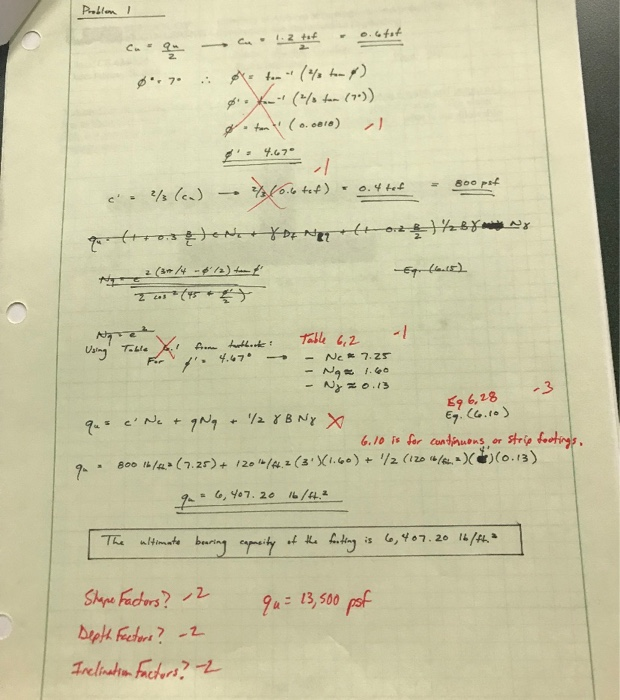 Problem 1
Cu = qu/2 → Cu = 1.2 tsf/2 = 0.6 tsf
ϕ = 7° ∴ ϕ' = tan⁻¹ (2/3 tan ϕ)
ϕ' = tan⁻¹ (2/3 tan (7°))
ϕ' = tan⁻¹ (0.0818) -1
ϕ' = 4.67°
-1
c' = 2/3 (cu) → 2/3 (0.6 tsf) = 0.4 tsf = 800 psf
qu = (1 + 0.3 B/L) c Nc + γ Df Nq + (1 - 0.2 B/L) 1/2 B γ Nγ
Nq = e^2(3π/4 - ϕ'/2) tan ϕ' / 2 cos² (45 + ϕ'/2) Eq. (6.15)
Nq = e²
Using Table 6.1 from textbook: Table 6.2 -1
For ϕ' = 4.67° → - Nc ≈ 7.25
- Nq ≈ 1.60
- Nγ ≈ 0.13
Eq 6.28 -3
qu = c' Nc + qNq + 1/2 γ B Nγ X Eq. (6.10)
6.10 is for continuous or strip footings.
qu = 800 lb/ft² (7.25) + 120 lb/ft² (3')(1.60) + 1/2 (120 lb/ft²)(4')(0.13)
qu = 6,407.20 lb/ft²
The ultimate bearing capacity of the footing is 6,407.20 lb/ft²
Shape Factors? -2 qu = 13,500 psf
Depth Factors? -2
Inclination Factors? -2